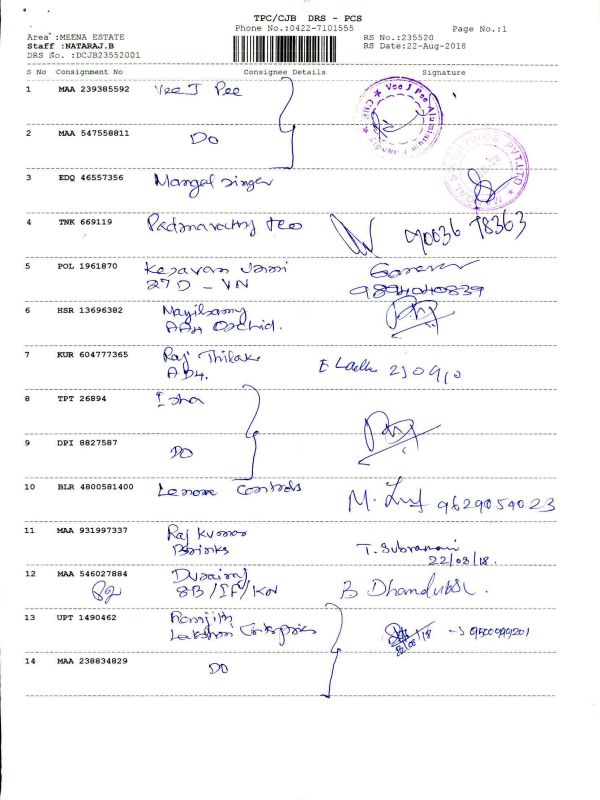 TPC/CJB DRS - PCS
Phone No.:0422-7101555
Page No.:1
Area :MEENA ESTATE
Staff :NATARAJ.B
DRS No. :DCJB23552001
RS No.:235520
RS Date:22-Aug-2018
S No Consignment No Consignee Details Signature
1 MAA 239385592 Vee J Pee
Vee J Pee Aluminium
2 MAA 547558811 DO
PVT.LTD
3 EDQ 46557356 Mangal singer
4 TNK 669119 Padmavathy teo
90036 78363
5 POL 1961870 Kesavan
27 D - VN
9894040839
6 HSR 13696382
AAH Orchid.
7 KUR 604777365 Raj Thilak
AD4.
8 TPT 26894 Isha
9 DPI 8827587 DO
10 BLR 4800581400 Lenore Controls
M. 9629059023
11 MAA 931997337 Raj Kumar
Brinks
T. Subramani
22/08/18.
12 MAA 546027884 Durairaj
8B/IF/KN
B
13 UPT 1490462 Ramjith
Lakshmi Enterprises
22/08/18
14 MAA 238834829 DO